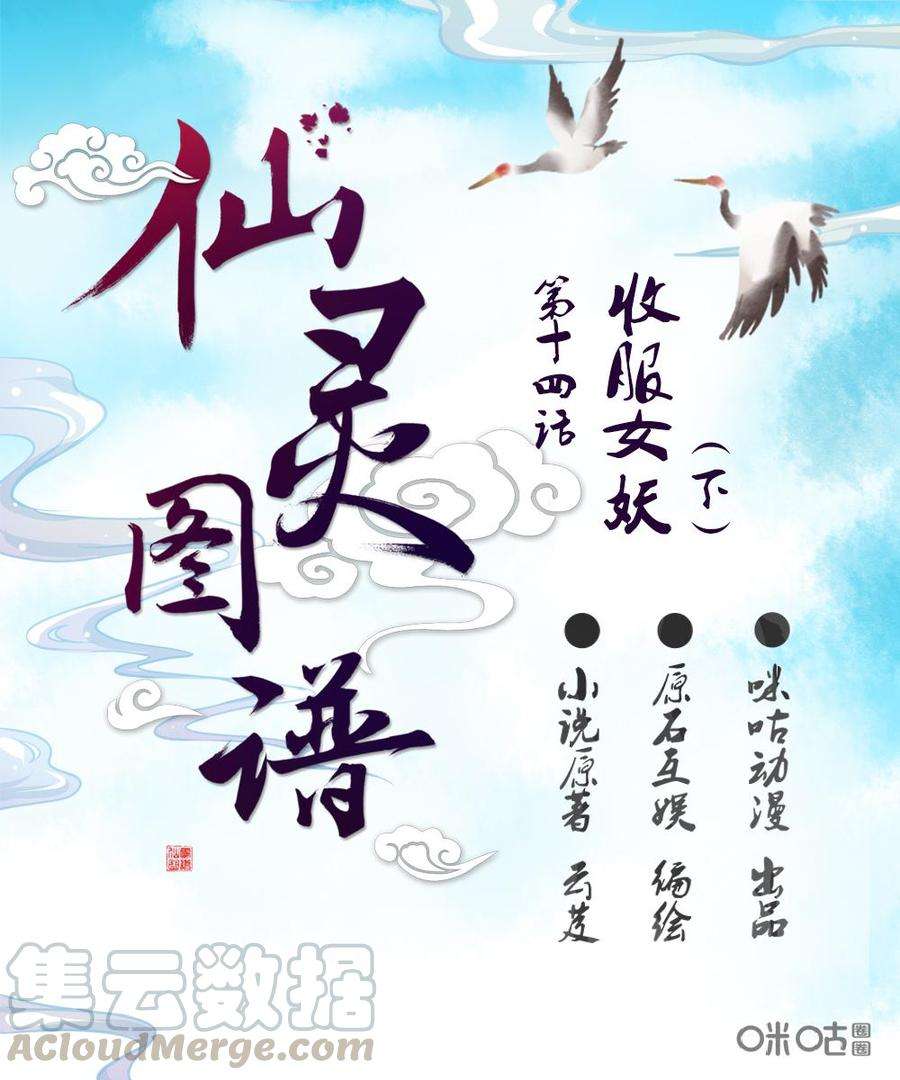 仙灵图谱
第十四话
收服女妖
（下）
咪咕动漫 出品
原石互娱 编绘
小说原著 云芨
集云数据
ACloudMerge.com
咪咕圈圈